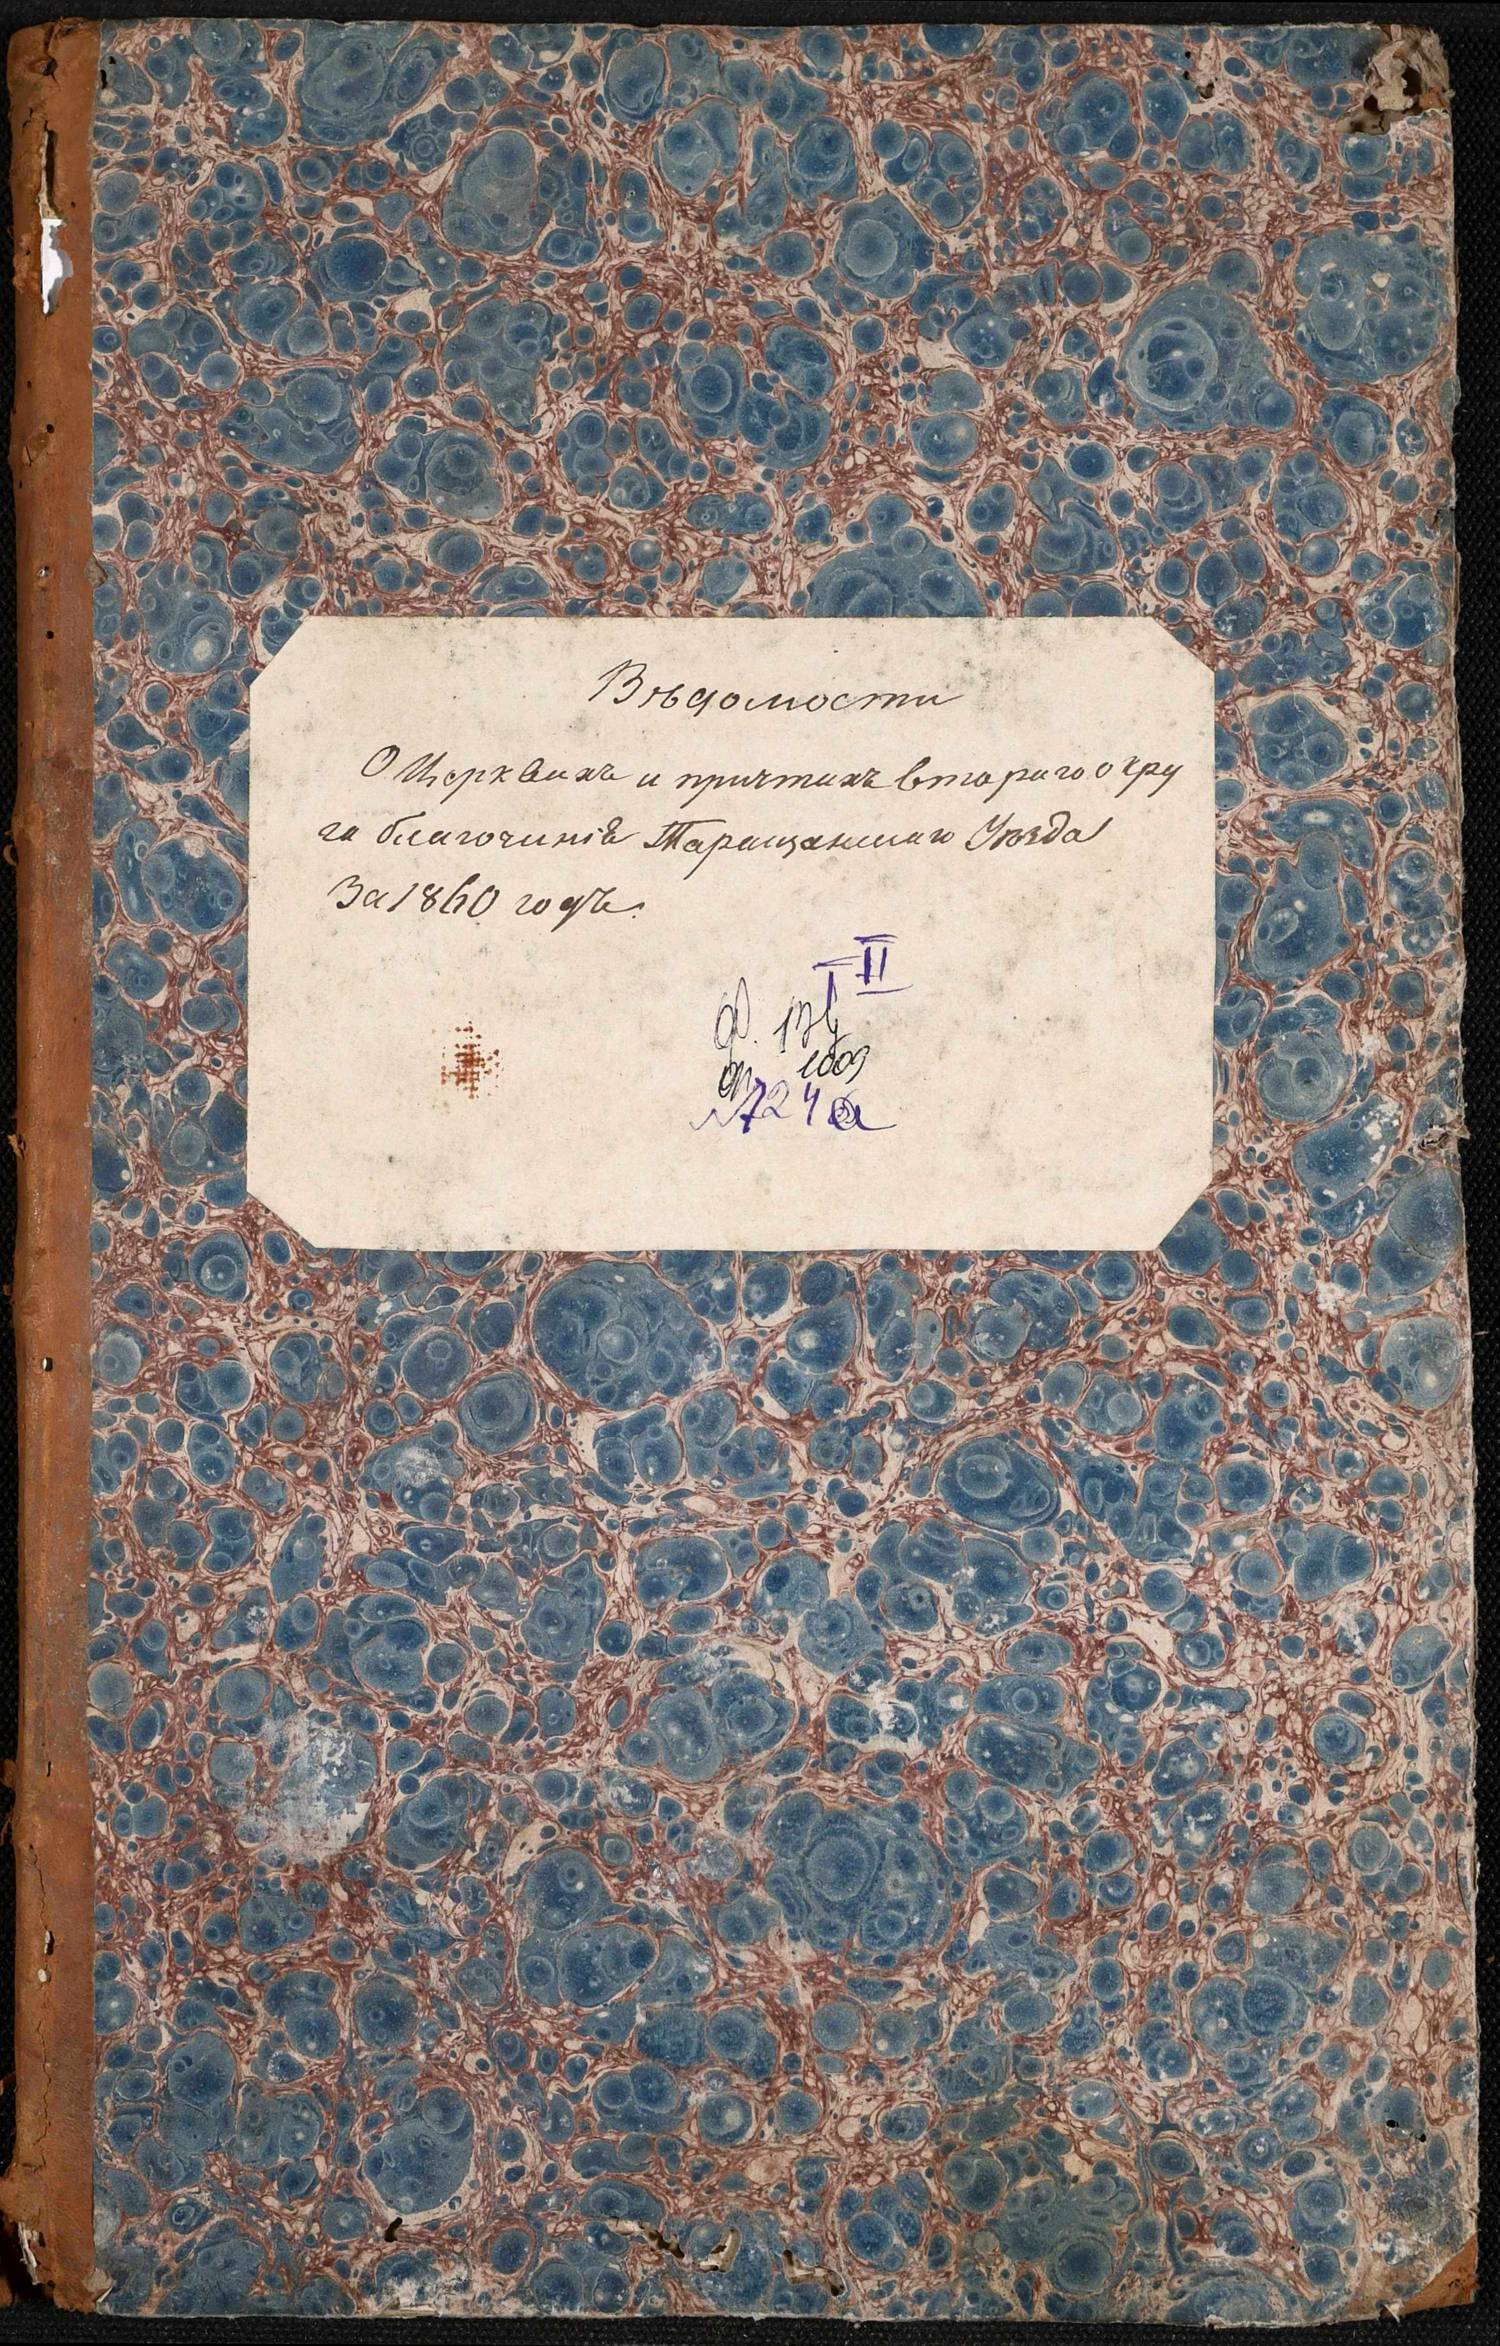 Вѣдомости
О Церквахъ и причтахъ втораго окру
га благочинія Таращанскаго Уѣзда
За 1860 годъ.
II
I
ф. 127
оп. 1009
№ 724 а